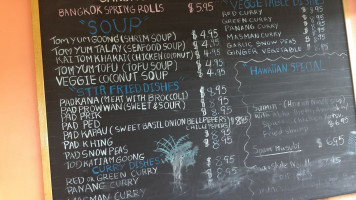 BANGKOK SPRING ROLLS $5.95
"SOUP"
TOM YUM GOONG (SHRIM SOUP) $4.95
TOM YUM TALAY (SEAFOOD SOUP) $4.95
KAI TOM KHAKAI (CHICKEN COCONUT) $4.95
TOM YUM TOFU (TOFU SOUP) $4.95
VEGGIE COCONUT SOUP $4.95
"STIR FRIED DISHES"
PAD KANA (MEAT WITH BROCCOLI) $
PAD PROWWAN (SWEET & SOUR) $
PAD PRIK $
PAD PED
PAD KAPAU (SWEET BASIL ONION BELLPEPPERS CHILLI PEPPERS) $8.95
PAD KHING $8.95
PAD SNOW PEAS $8.95
TOD KATIAM GOONG $8.95
CURRY DISHES
RED OR GREEN CURRY $8.95
PANANG CURRY $
MASMAN CURRY $
VEGGETABLE DISHES
RED CURRY
GREEN CURRY
PANANG CURRY
MASMAN CURRY
GARLIC SNOW PEAS
GINGER VEGETABLE
HAWAIIAN SPECIAL
Saimin
Fried Shrimp
Spam Musubi $6.95